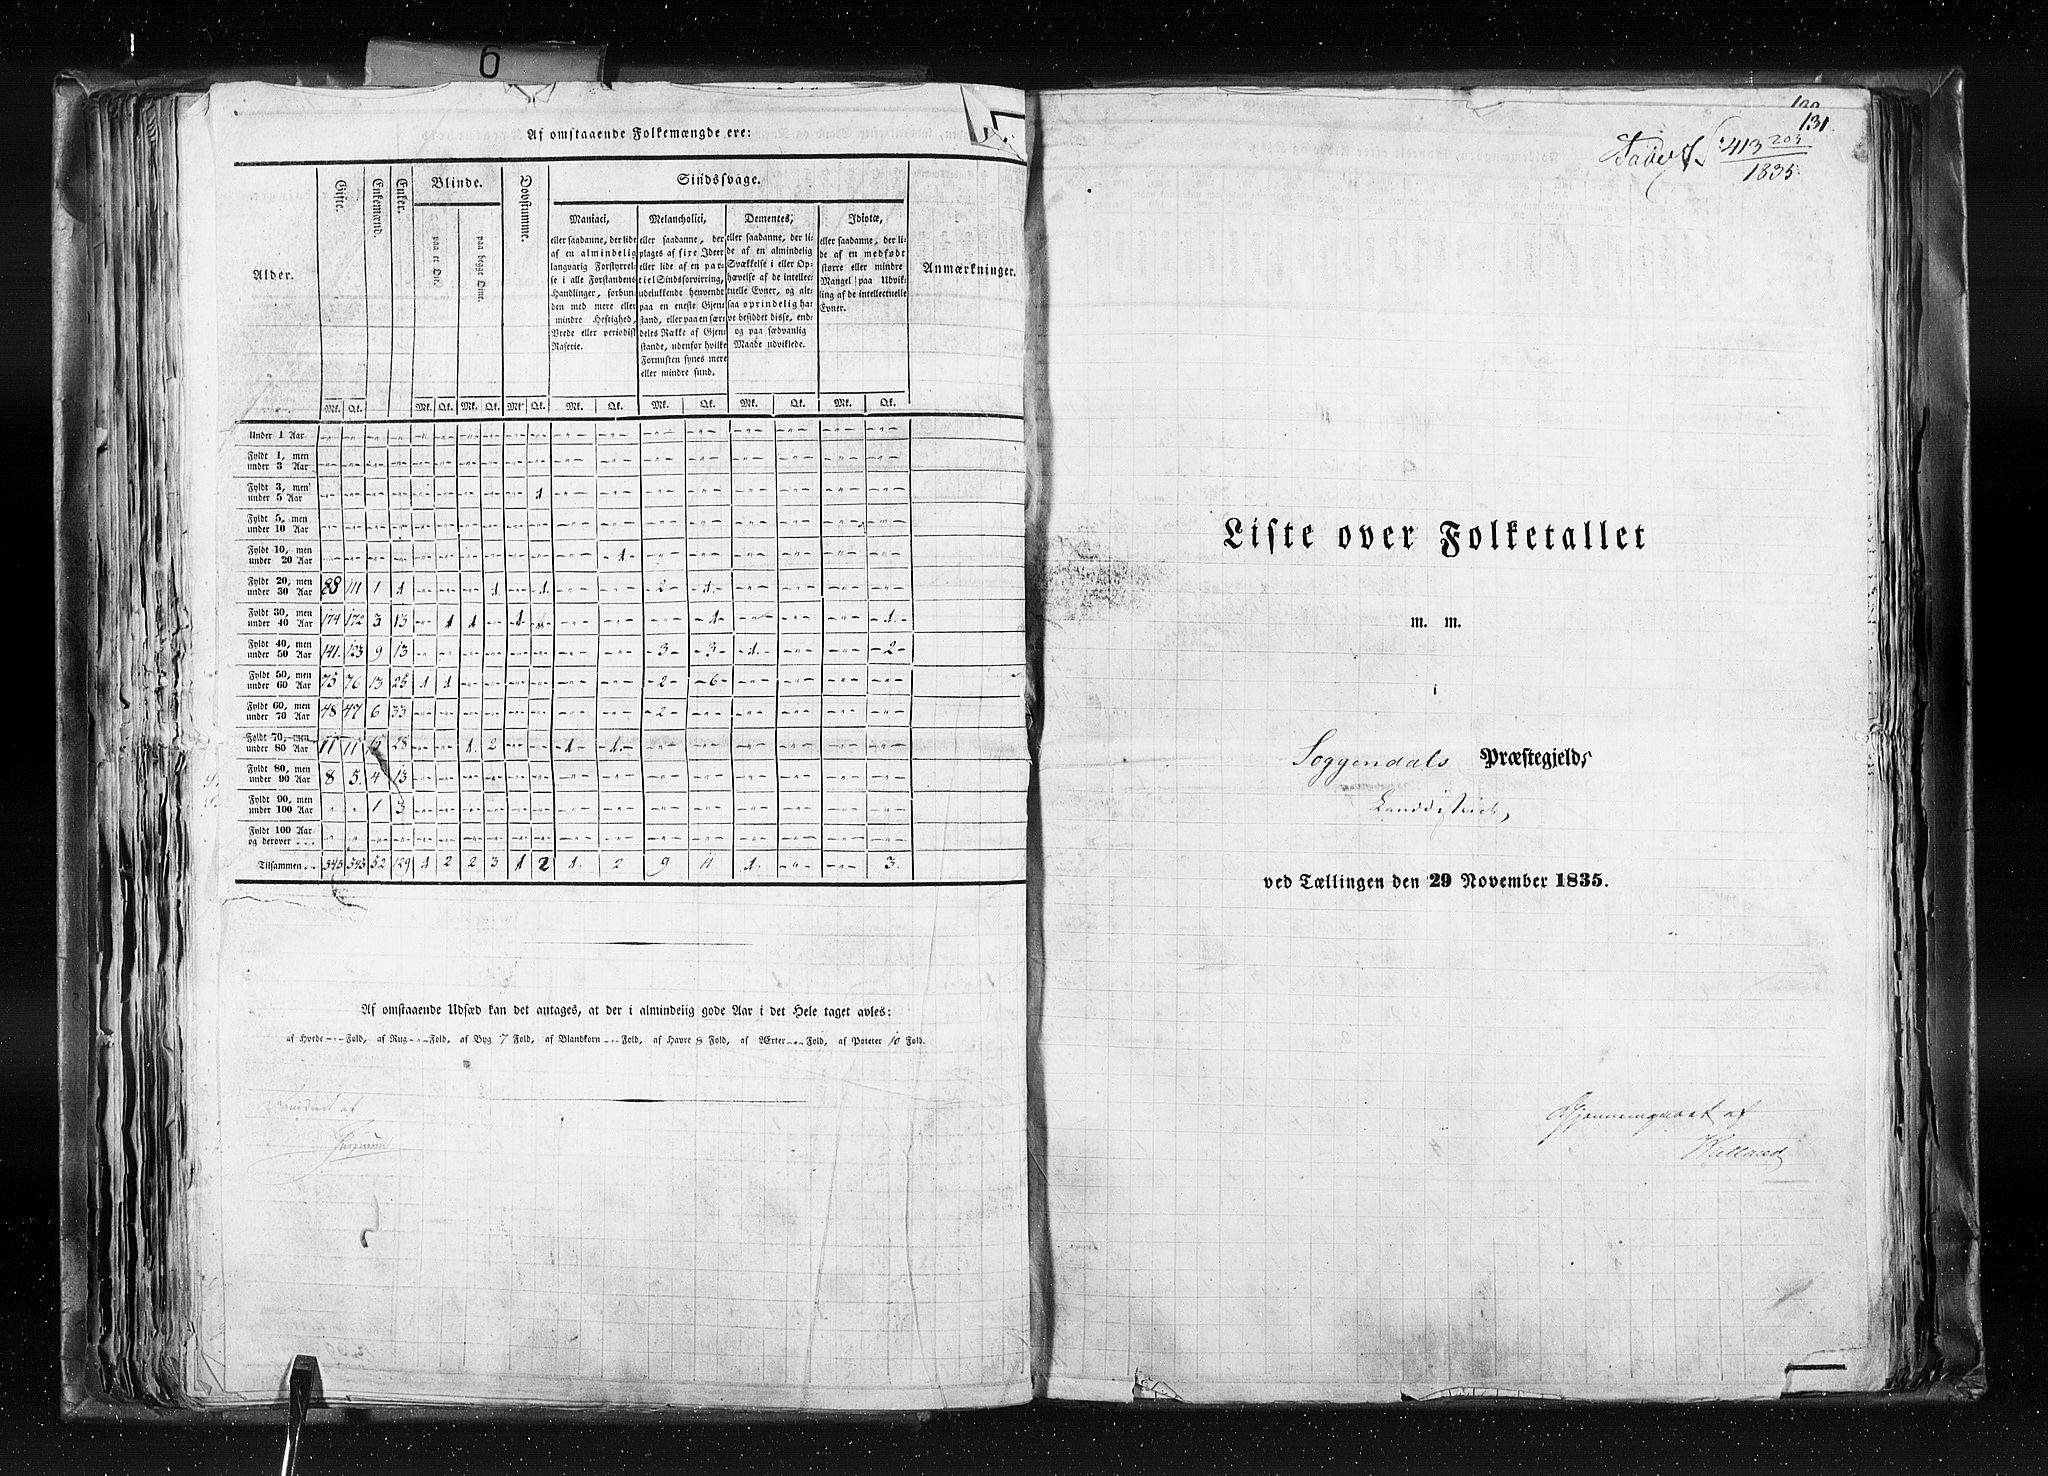 6
Af omstaaende Folkemængde ere:
Alder. Gifte. Enkemænd. Enker. Blinde. Døvstumme. Sindssvage. Anmærkninger.
paa et Øie. paa begge Øine.
Maniaci, eller saadanne, der lide af en almindelig langvarig Forstyrrelse i alle Forstandens Handlinger, forbunden med mere eller mindre Heftighed, Vrede eller periodisk Raserie.
Melancholici, eller saadanne, der plages af fixe Ideer eller lide af en partiel Sindsforvirring, udelukkende henvendt paa en eneste Gjenstand, eller paa en særdeles Række af Gjenstande, udenfor hvilke Fornuften synes mere eller mindre sund.
Dementes, eller saadanne, der lide af en almindelig Svækkelse i eller Ophævelse af de intellectuelle Evner, og altsaa oprindelig have besiddet disse, endog paa sædvanlig Maade udviklede.
Idiotæ, eller saadanne, der lide af en medfødt større eller mindre Mangel paa Udvikling af de intellectuelle Evner.
Mk. Qk. Mk. Qk. Mk. Qk. Mk. Qk. Mk. Qk. Mk. Qk. Mk. Qk. Mk. Qk.
Under 1 Aar -"- -"- -"- -"- -"- -"- -"- -"- -"- -"- -"- -"- -"- -"- -"- -"- -"- -"-
Fyldt 1, men under 3 Aar -"- -"- -"- -"- -"- -"- -"- -"- -"- -"- -"- -"- -"- -"- -"- -"- -"- -"-
Fyldt 3, men under 5 Aar -"- -"- -"- -"- -"- -"- -"- -"- -"- 1 -"- -"- -"- -"- -"- -"- -"- -"-
Fyldt 5, men under 10 Aar -"- -"- -"- -"- -"- -"- -"- -"- -"- -"- -"- -"- -"- -"- -"- -"- -"- -"-
Fyldt 10, men under 20 Aar -"- -"- -"- -"- -"- -"- -"- -"- -"- -"- -"- -1- -"- -"- -"- -"- -"- -"-
Fyldt 20, men under 30 Aar 88 111 1 1 -"- -"- -"- 1 -"- 1 -"- -"- -2- -1- -"- -"- -"- -"-
Fyldt 30, men under 40 Aar 174 172 3 13 -"- 1 1 -"- 1 -"- -"- -"- -"- -1- -"- -"- -"- -1-
Fyldt 40, men under 50 Aar 141. 123 9 13 -"- -"- -"- -"- -"- -"- -"- -"- -3- -3- -1- -"- -"- -2-
Fyldt 50, men under 60 Aar 75 76 13 25 1 1 -"- -"- -"- -"- -"- -"- -2- -6- -"- -"- -"- -"-
Fyldt 60, men under 70 Aar 48 47 6 33 -"- -"- -"- -"- -"- -"- -"- -"- -2- -"- -"- -"- -"- -"-
Fyldt 70, men under 80 Aar 11 11 28 -"- -"- 1 2 -"- -"- -1- -1- -"- -"- -"- -"- -"- -"-
Fyldt 80, men under 90 Aar 8 5. 4 13 -"- -"- -"- -"- -"- -"- -"- -"- -"- -"- -"- -"- -"- -"-
Fyldt 90, men under 100 Aar " " 1 3 -"- -"- -"- -"- -"- -"- -"- -"- -"- -"- -"- -"- -"- -"-
Fyldt 100 Aar og derover . . . " " -"- -"- -"- -"- -"- -"- -"- -"- -"- -"- -"- -"- -"- -"- -"- -"-
Tilsammen . . 545 545 52 129 1 2 2 3 1 2 1. 2 9 11 1. -"- -"- 3.
Af omstaaende Udsæd kan det antages, at der i almindelig gode Aar i det Hele taget avles:
af Hvede -"- Fold, af Rug -"- Fold, af Byg 7 Fold, af Blandkorn -"- Fold, af Havre 8 Fold, af Ærter -"- Fold, af Poteter 10 Fold.
131.
413 203
1835.
Liste over Folketallet
m. m.
i
Soggendals Præstegjelds
Landdistrict,
ved Tællingen den 29 November 1835.
Gjennemgaaet af